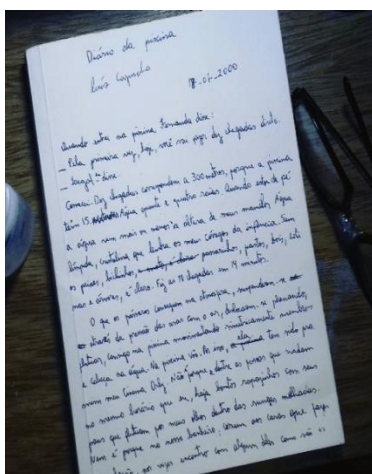 Diário da piscina
Luís Capucho
-01-2000
Quando entro na piscina, Fernanda disse:
– Pela primeira vez, hoje, você vai fazer dez chegadas direto.
– disse.
Comecei. Dez chegadas correspondem a 300 metros, porque a piscina
tem 15. Água quente e quatro raias. Quando estou de pé
a água vem mais ou menos à altura de meus mamilos. Água
límpida, cristalina que lembra os meus córregos da infância. Sem
os peixes, bichinhos, passarinhos, patos, bois,
mas e árvores, é claro. Fiz as 10 chegadas em 14 minutos.
O que os pássaros conseguem na atmosfera, suspendem-se
através da pressão das asas com o ar, deslocam-se planando,
flutuam, consigo na piscina movimentando membros
e cabeça na água. Na piscina vôo. Por isso, ela tem sido pra
mim meu Cinema Orly. Não porque, dentre os pessoas que nadam
no mesmo horário que eu, haja tantos rapazinhos com seus
paus que flutuam por meus olhos dentro das sungas molhadas.
Nem é porque no nosso banheiro, como os caras que fazem
, por vezes encontro com algum deles como são os